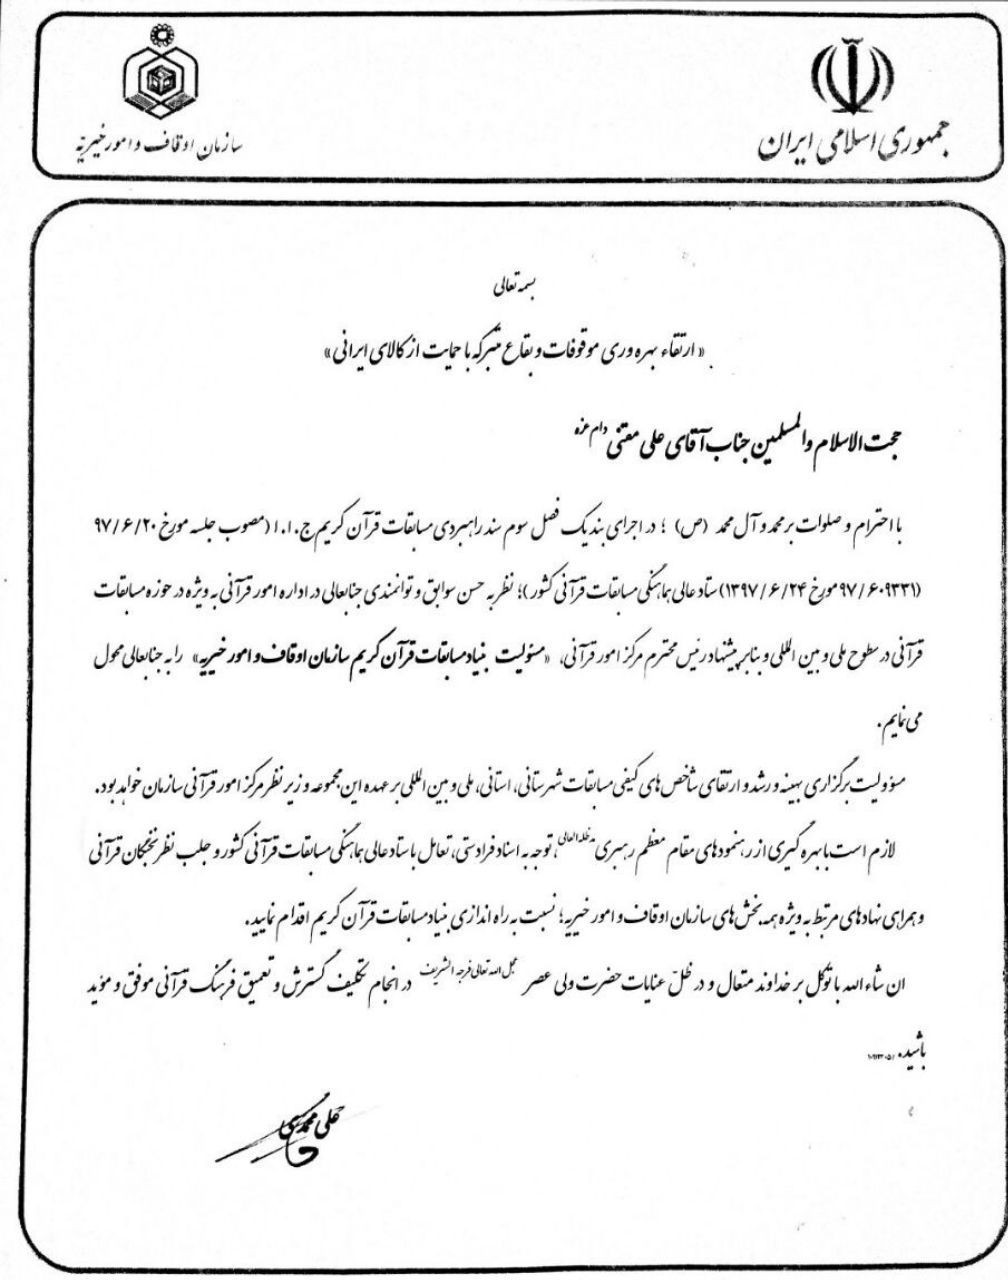 جمهوری اسلامی ایران
سازمان اوقاف و امور خیریه
بسمه تعالی
« ارتقاء بهره وری موقوفات و بقاع متبرکه با حمایت از کالای ایرانی »
حجت الاسلام والمسلمین جناب آقای علی مقنی دام عزه
با احترام و صلوات بر محمد و آل محمد (ص) ؛ در اجرای بند یک فصل سوم سند راهبردی مسابقات قرآن کریم ج.ا.ا (مصوب جلسه مورخ ۹۷/۶/۲۰
(۹۷/۶۰۹۳۳۱ مورخ ۱۳۹۷/۶/۲۴) ستاد عالی هماهنگی مسابقات قرآنی کشور )؛ نظر به حسن سوابق و توانمندی جنابعالی در اداره امور قرآنی به ویژه در حوزه مسابقات
قرآنی در سطوح ملی و بین المللی و بنابر پیشنهاد رئیس محترم مرکز امور قرآنی، «مسئولیت بنیاد مسابقات قرآن کریم سازمان اوقاف و امور خیریه» را به جنابعالی محول
می نمایم.
مسؤولیت برگزاری بهینه و رشد و ارتقای شاخص های کیفی مسابقات شهرستانی، استانی، ملی و بین المللی بر عهده این مجموعه و زیر نظر مرکز امور قرآنی سازمان خواهد بود.
لازم است با بهره گیری از رهنمودهای مقام معظم رهبری مدظله العالی، توجه به اسناد فرادستی، تعامل با ستاد عالی هماهنگی مسابقات قرآنی کشور و جلب نظر نخبگان قرآنی
و همراهی نهادهای مرتبط به ویژه همه بخش های سازمان اوقاف و امور خیریه؛ نسبت به راه اندازی بنیاد مسابقات قرآن کریم اقدام نمایید.
ان شاءالله با توکل بر خداوند متعال و در ظلّ عنایات حضرت ولی عصر عجل الله تعالی فرجه الشریف در انجام تکلیف گسترش و تعمیق فرهنگ قرآنی موفق و مؤید
باشید.
علی محمدی